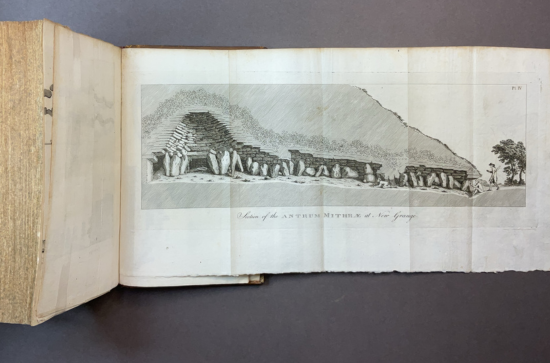 Pl. IV
Section of the ANTRUM MITHRÆ at New Grange.